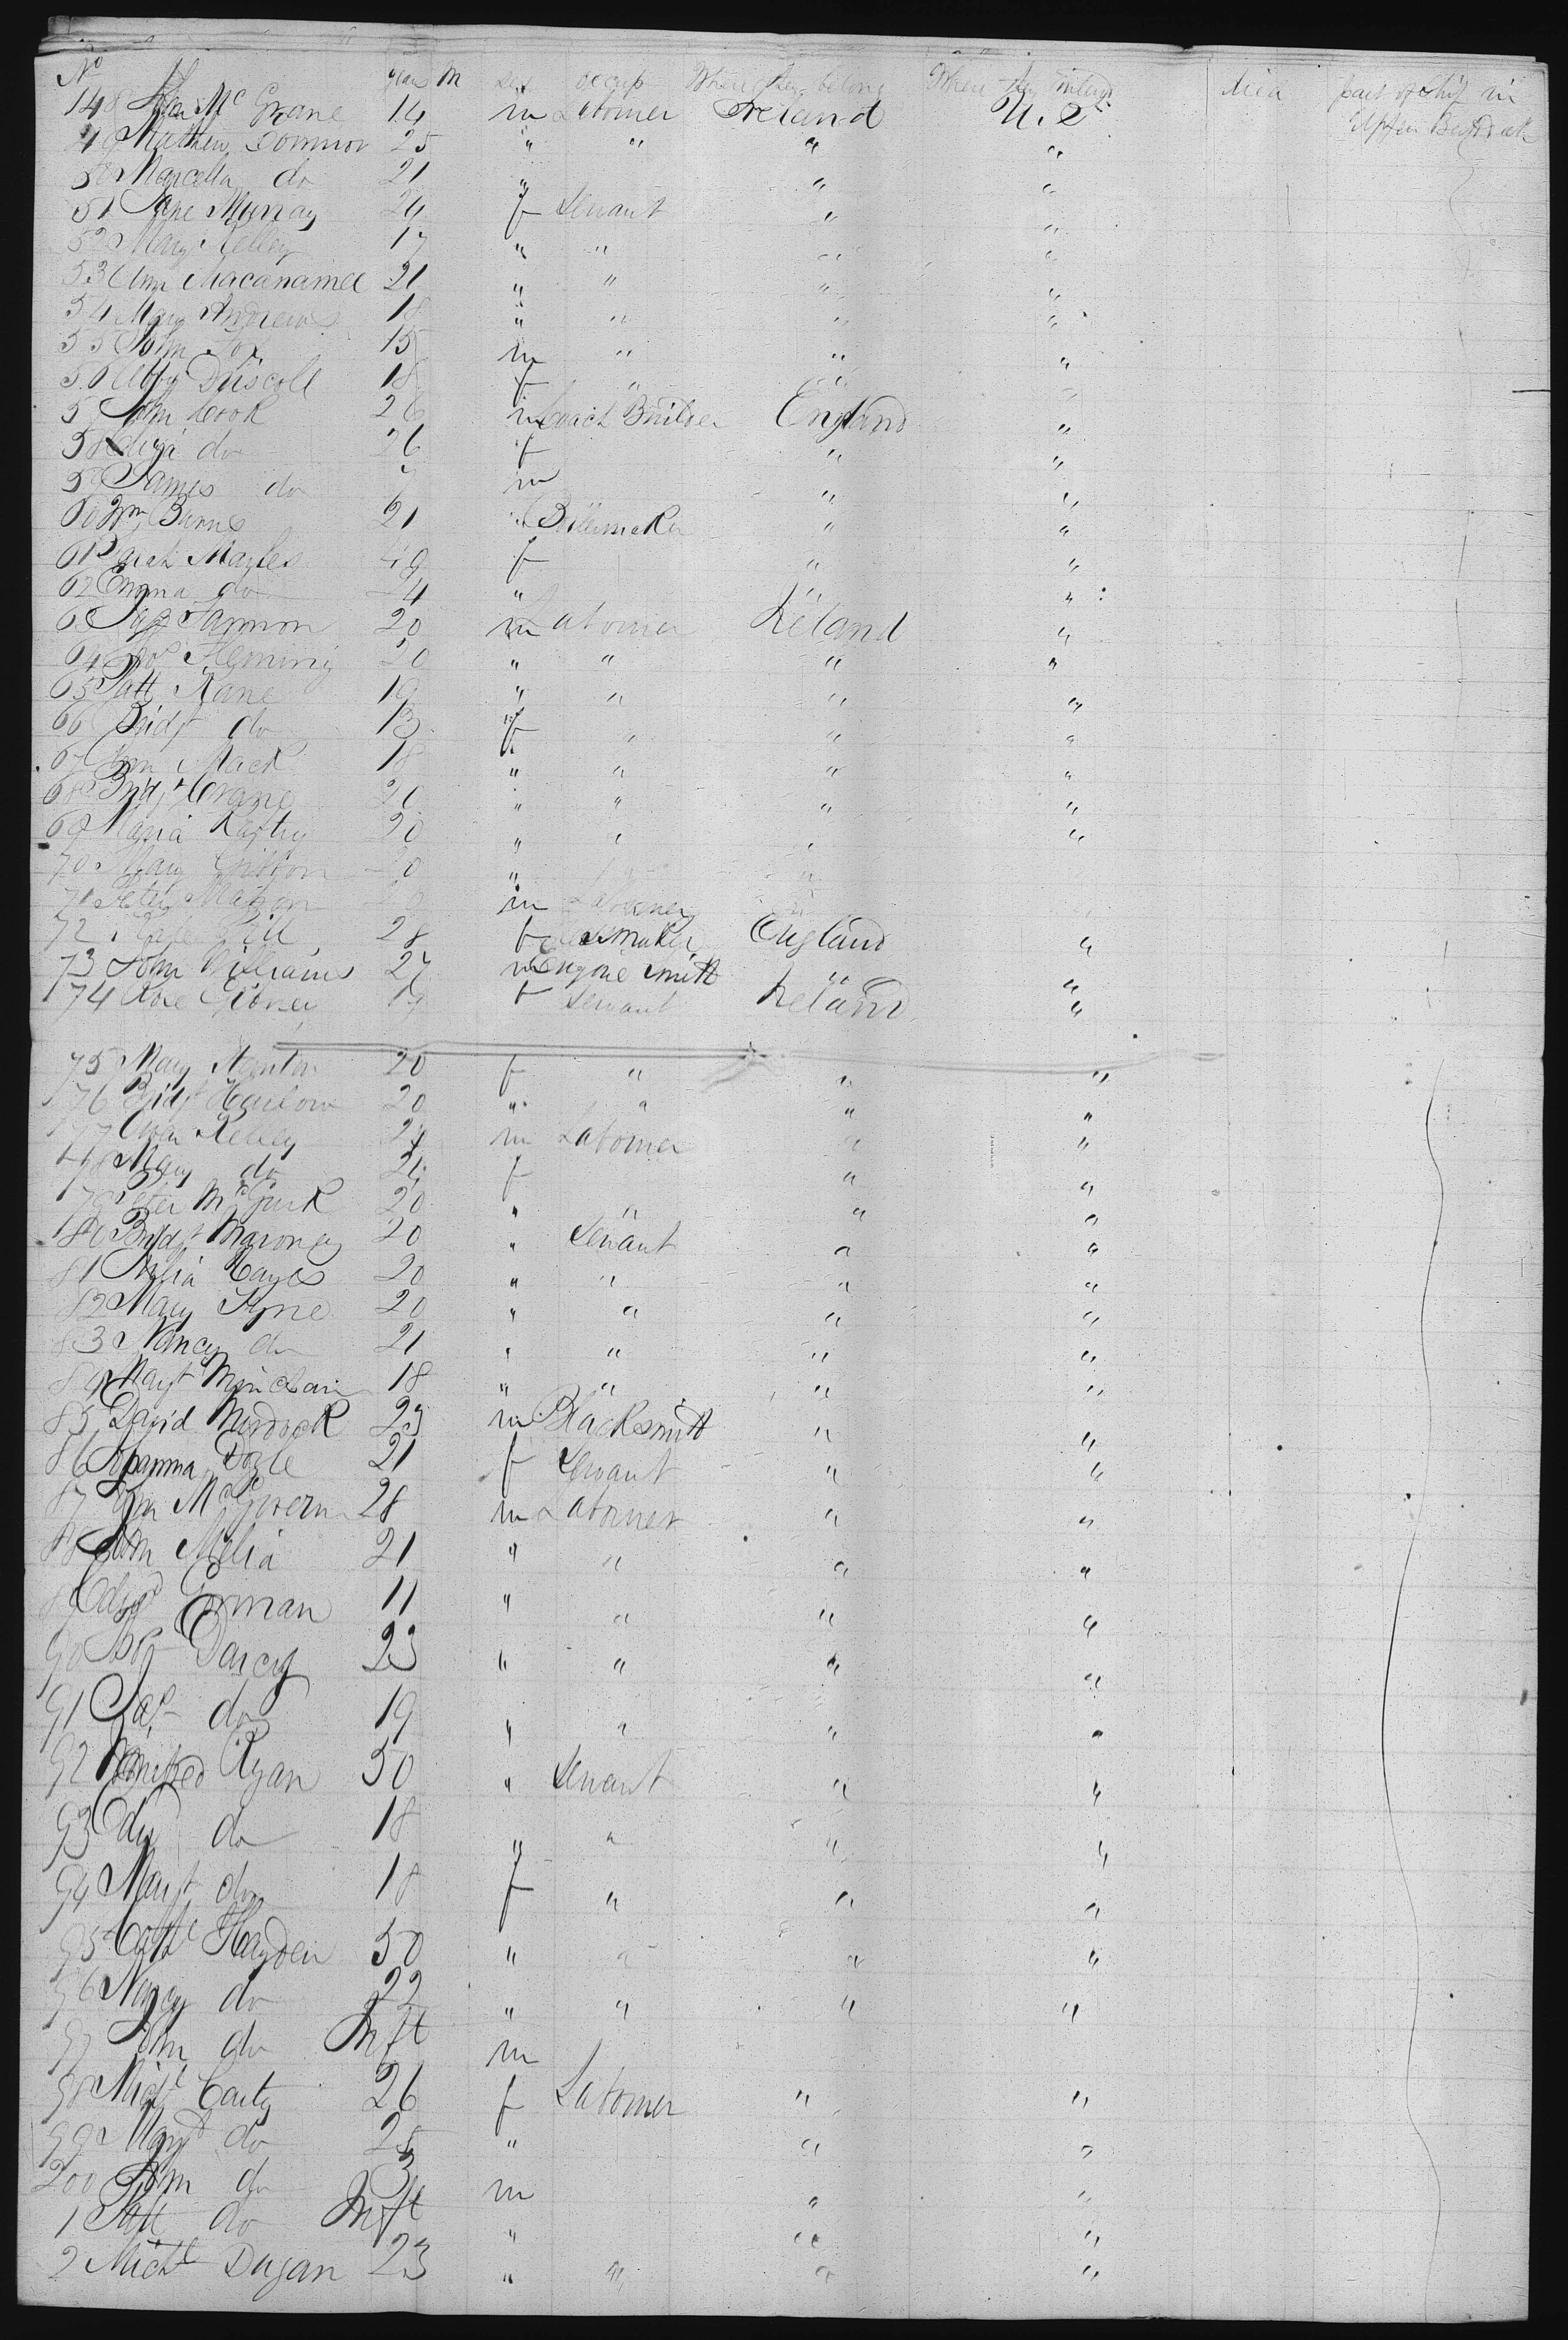 No years M sex occup Where they belong Where they intend died part of ship in
148 Mc Grane 14 m Labourer Ireland U.S Upper Between Deck
49 Mathew Connor 25 " " " "
50 Marcella do 21 " " "
51 Jane Murray 24 f Servant " "
52 Mary Kelley 17 " " " "
53 Ann Macanamee 21 " " " "
54 Mary Andrews 18 " " " "
55 John Fox 15 m " " "
56 Abby Driscoll 18 f " " "
57 John Cook 26 m Coach Builder England "
58 Eliza do 26 f " "
59 James do m " "
60 Wm Burns 21 " Boilermaker " "
61 Sarah Mayles 49 f " "
62 Emma do 4 " " "
63 Jas Gannon 20 m Labourer Ireland "
64 Thos Fleming 20 " " " "
65 Patt Kane 19 " " " "
66 Bridgt do 13 f " " "
67 Ann Mack 18 " " " "
68 Bridgt Crane 20 " " " "
69 Maria 20 " " " "
70 Mary Gibbon 20 " " "
71 Peter Mahon m Labourer "
72 Kate Hill 28 f England "
73 John Williams 27 m Engine Smith " "
74 Rose Gibney 19 f Servant Ireland "
75 Mary 20 f " " "
76 Bridgt Hanlon 20 " " " "
177 Owen Kelley 24 m Labourer " "
78 Mary do 21 f " "
79 Peter McGurk 20 " " " "
180 Bridgt Maroney 20 " Servant " "
81 Hayes 20 " " " "
82 Mary Kyne 20 " " " "
83 Nancy do 21 " " " "
84 Margt 18 " " " "
85 David Murdock 23 m Blacksmith " "
86 Johanna Doyle 21 f Servant " "
87 McGovern 28 m Labourer " "
88 John Melia 21 " " " "
89 Edwd Gorman 11 " " " "
90 Darcy 23 " " " "
91 Jas do 19 " " " "
92 Winifred Ryan 50 " Servant " "
93 Edwd do 18 " " " "
94 Margt do 18 f " " "
95 Cathe Hayden 50 " " " "
96 Nancy do 22 " " " "
97 John do Inft m
98 Michl Carty 26 f Labourer " "
99 Margt do 25 " " "
200 John do 3 m " "
1 Patt do Inft " " "
2 Michl Dugan 23 " " " "